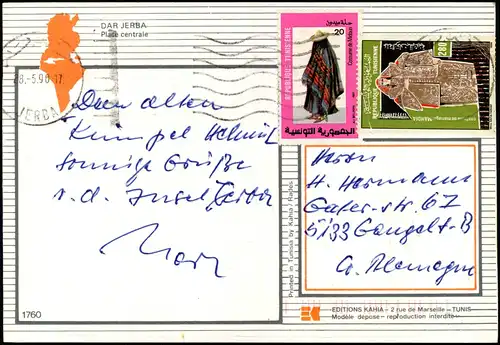 DAR JERBA
Place centrale
8.-5.90.17
JERBA
20
REPUBLIQUE TUNISIENNE
الجمهورية التونسية
280
REPUBLIQUE TUNISIENNE
MAHDIA
Dem alten
Kumpel Helmut
sonnige Grüße
v. d. Insel Jerba
Herrn
H. Hermann
Gater-str. 67
5133 Gangelt-B
Allemagne
Printed in Tunisia by Kahia / Rades
1760
EDITIONS KAHIA - 2 rue de Marseille - TUNIS
Modèle déposé - reproduction interdite